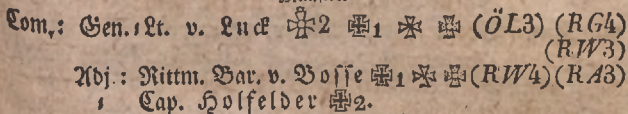 Com.: Gen.⸗Lt. v. Luck ✠2 ✠1 ✠ ✠ (ÖL3) (RG4)
(RW3)
Adj.: Rittm. Bar. v. Bosse ✠1 ✠ ✠ (RW4) (RA3)
⸗ Cap. Holfelder ✠2.